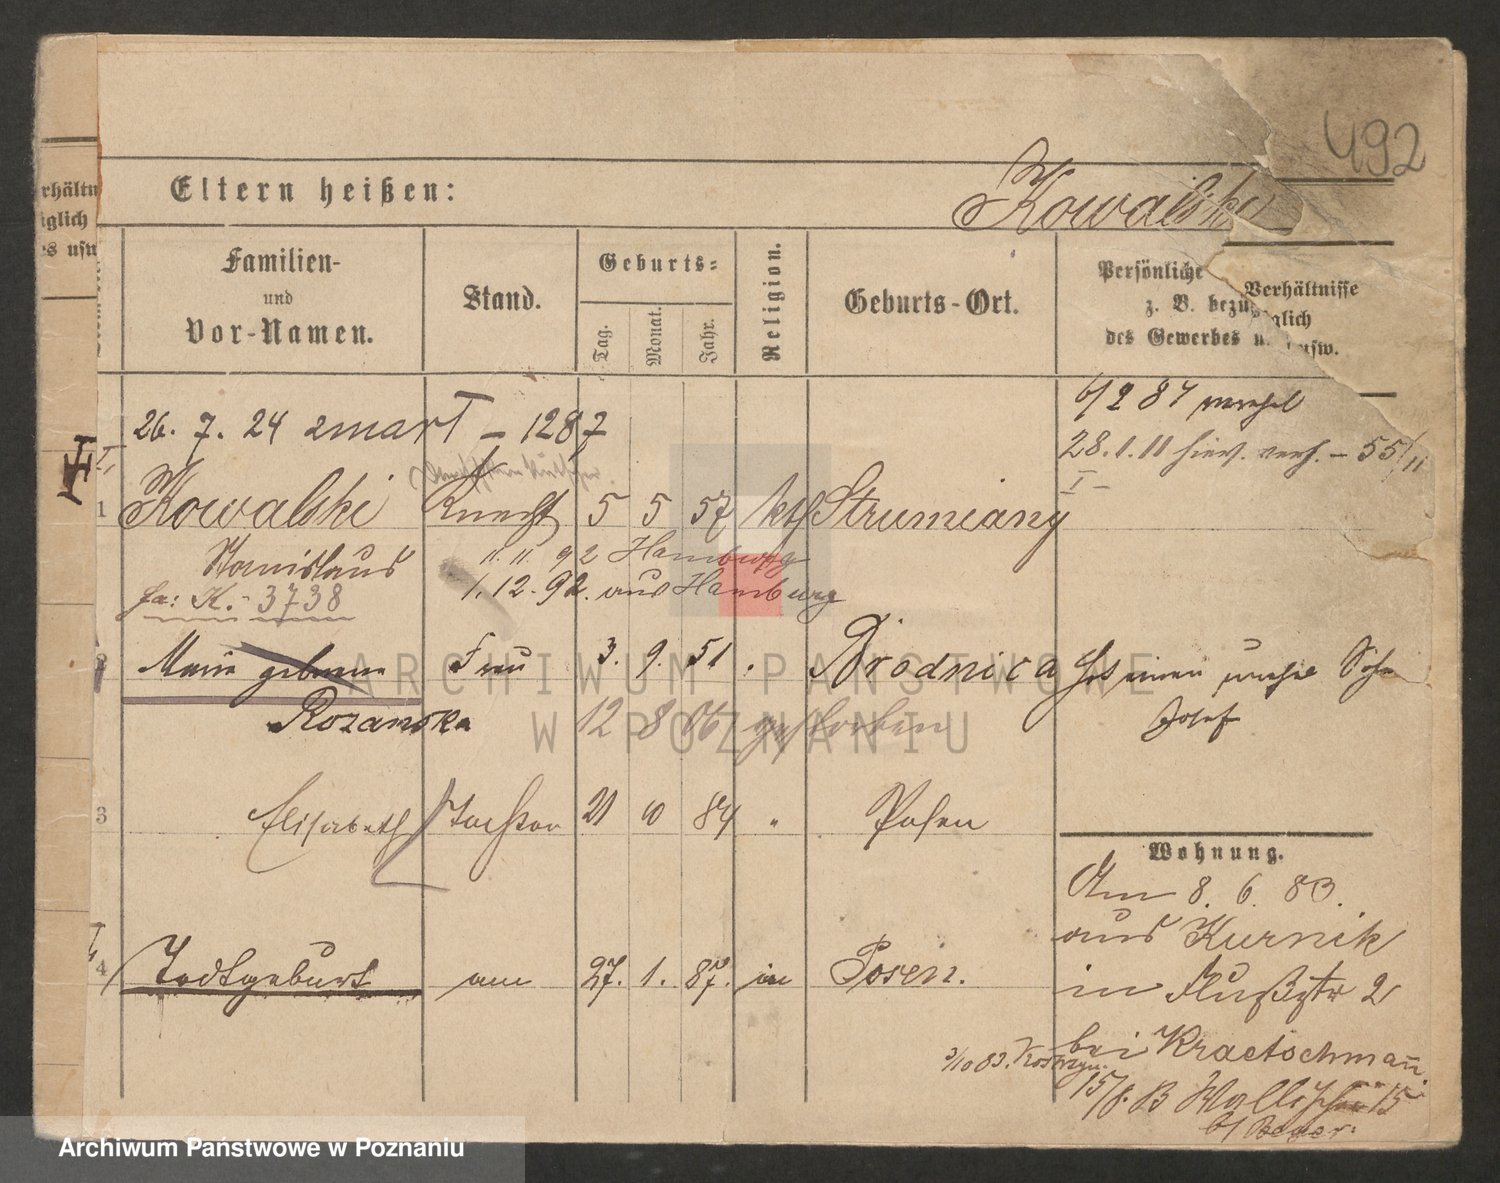 492
Eltern heißen:
Kowalski
Familien-
und
Vor-Namen.
Stand.
Geburts-
Tag.
Monat.
Jahr.
Religion.
Geburts-Ort.
Persönliche Verhältnisse
z. B. bezüglich
des Gewerbes usw.
26. 7. 24 zmarł – 1287
28.1.11 hier. verh. – 55/11
1 Kowalski Knecht 5 5 57 kth Strumiany
Stanislaus
11.11.92 Hamburg
1.12.92. aus Hamburg
fa: K. - 3738
2 Marie geborene Frau 3. 9. 51 Brodnica
Rozanska
12 8 06 gestorben
Josef
3 Elisabeth Tochter 21 10 84 " Posen
Wohnung.
Am 8. 6. 83.
aus Kurnik
in Flußstr 2
bei Kraetschmann
3/10 83. Kostrzyn.
15/8. B Wallischei 15
4 Todtgeburt am 27. 1. 87. in Posen.
rhältn
iglich
es usw
ARCHIWUM PAŃSTWOWE
W POZNANIU
Archiwum Państwowe w Poznaniu